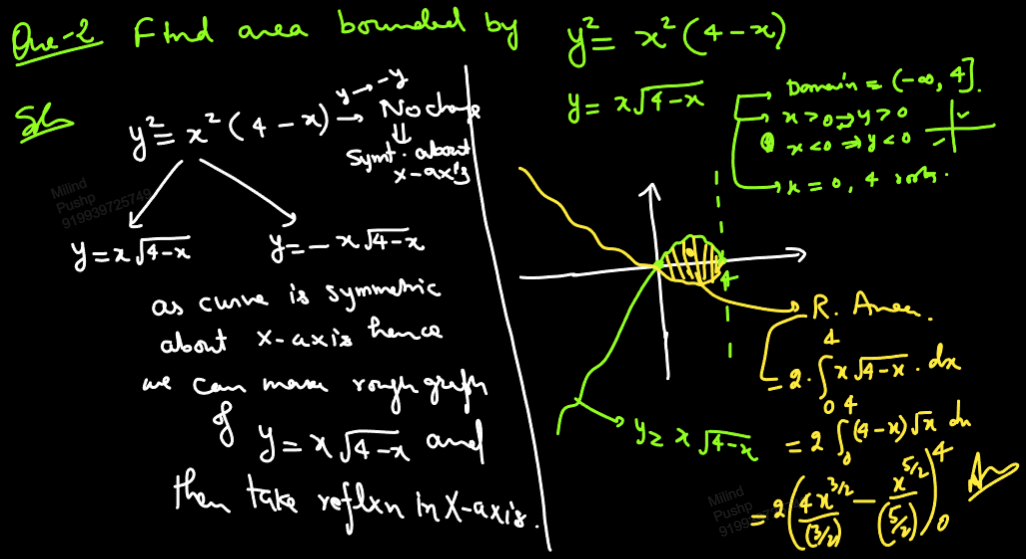 Que-2 Find area bounded by y² = x²(4-x)
Sol
y² = x²(4-x) → No change
y → -y
⇓
Symt. about
x-axis
y = x√4-x
y = -x√4-x
as curve is symmetric
about x-axis hence
we can make rough graph
of y = x√4-x and
then take reflxn in X-axis.
y = x√4-x
Domain = (-∞, 4].
x>0 ⇒ y>0
x<0 ⇒ y<0
x = 0, 4 roots.
4
R. Area.
= 2·∫₀⁴ x√4-x · dx
y = x√4-x
= 2∫₀⁴ (4-x)√x dx
= 2(4x^3/2/(3/2) - x^5/2/(5/2))₀⁴ Ans
Milind
Pushp
919939725749
Milind
Pushp